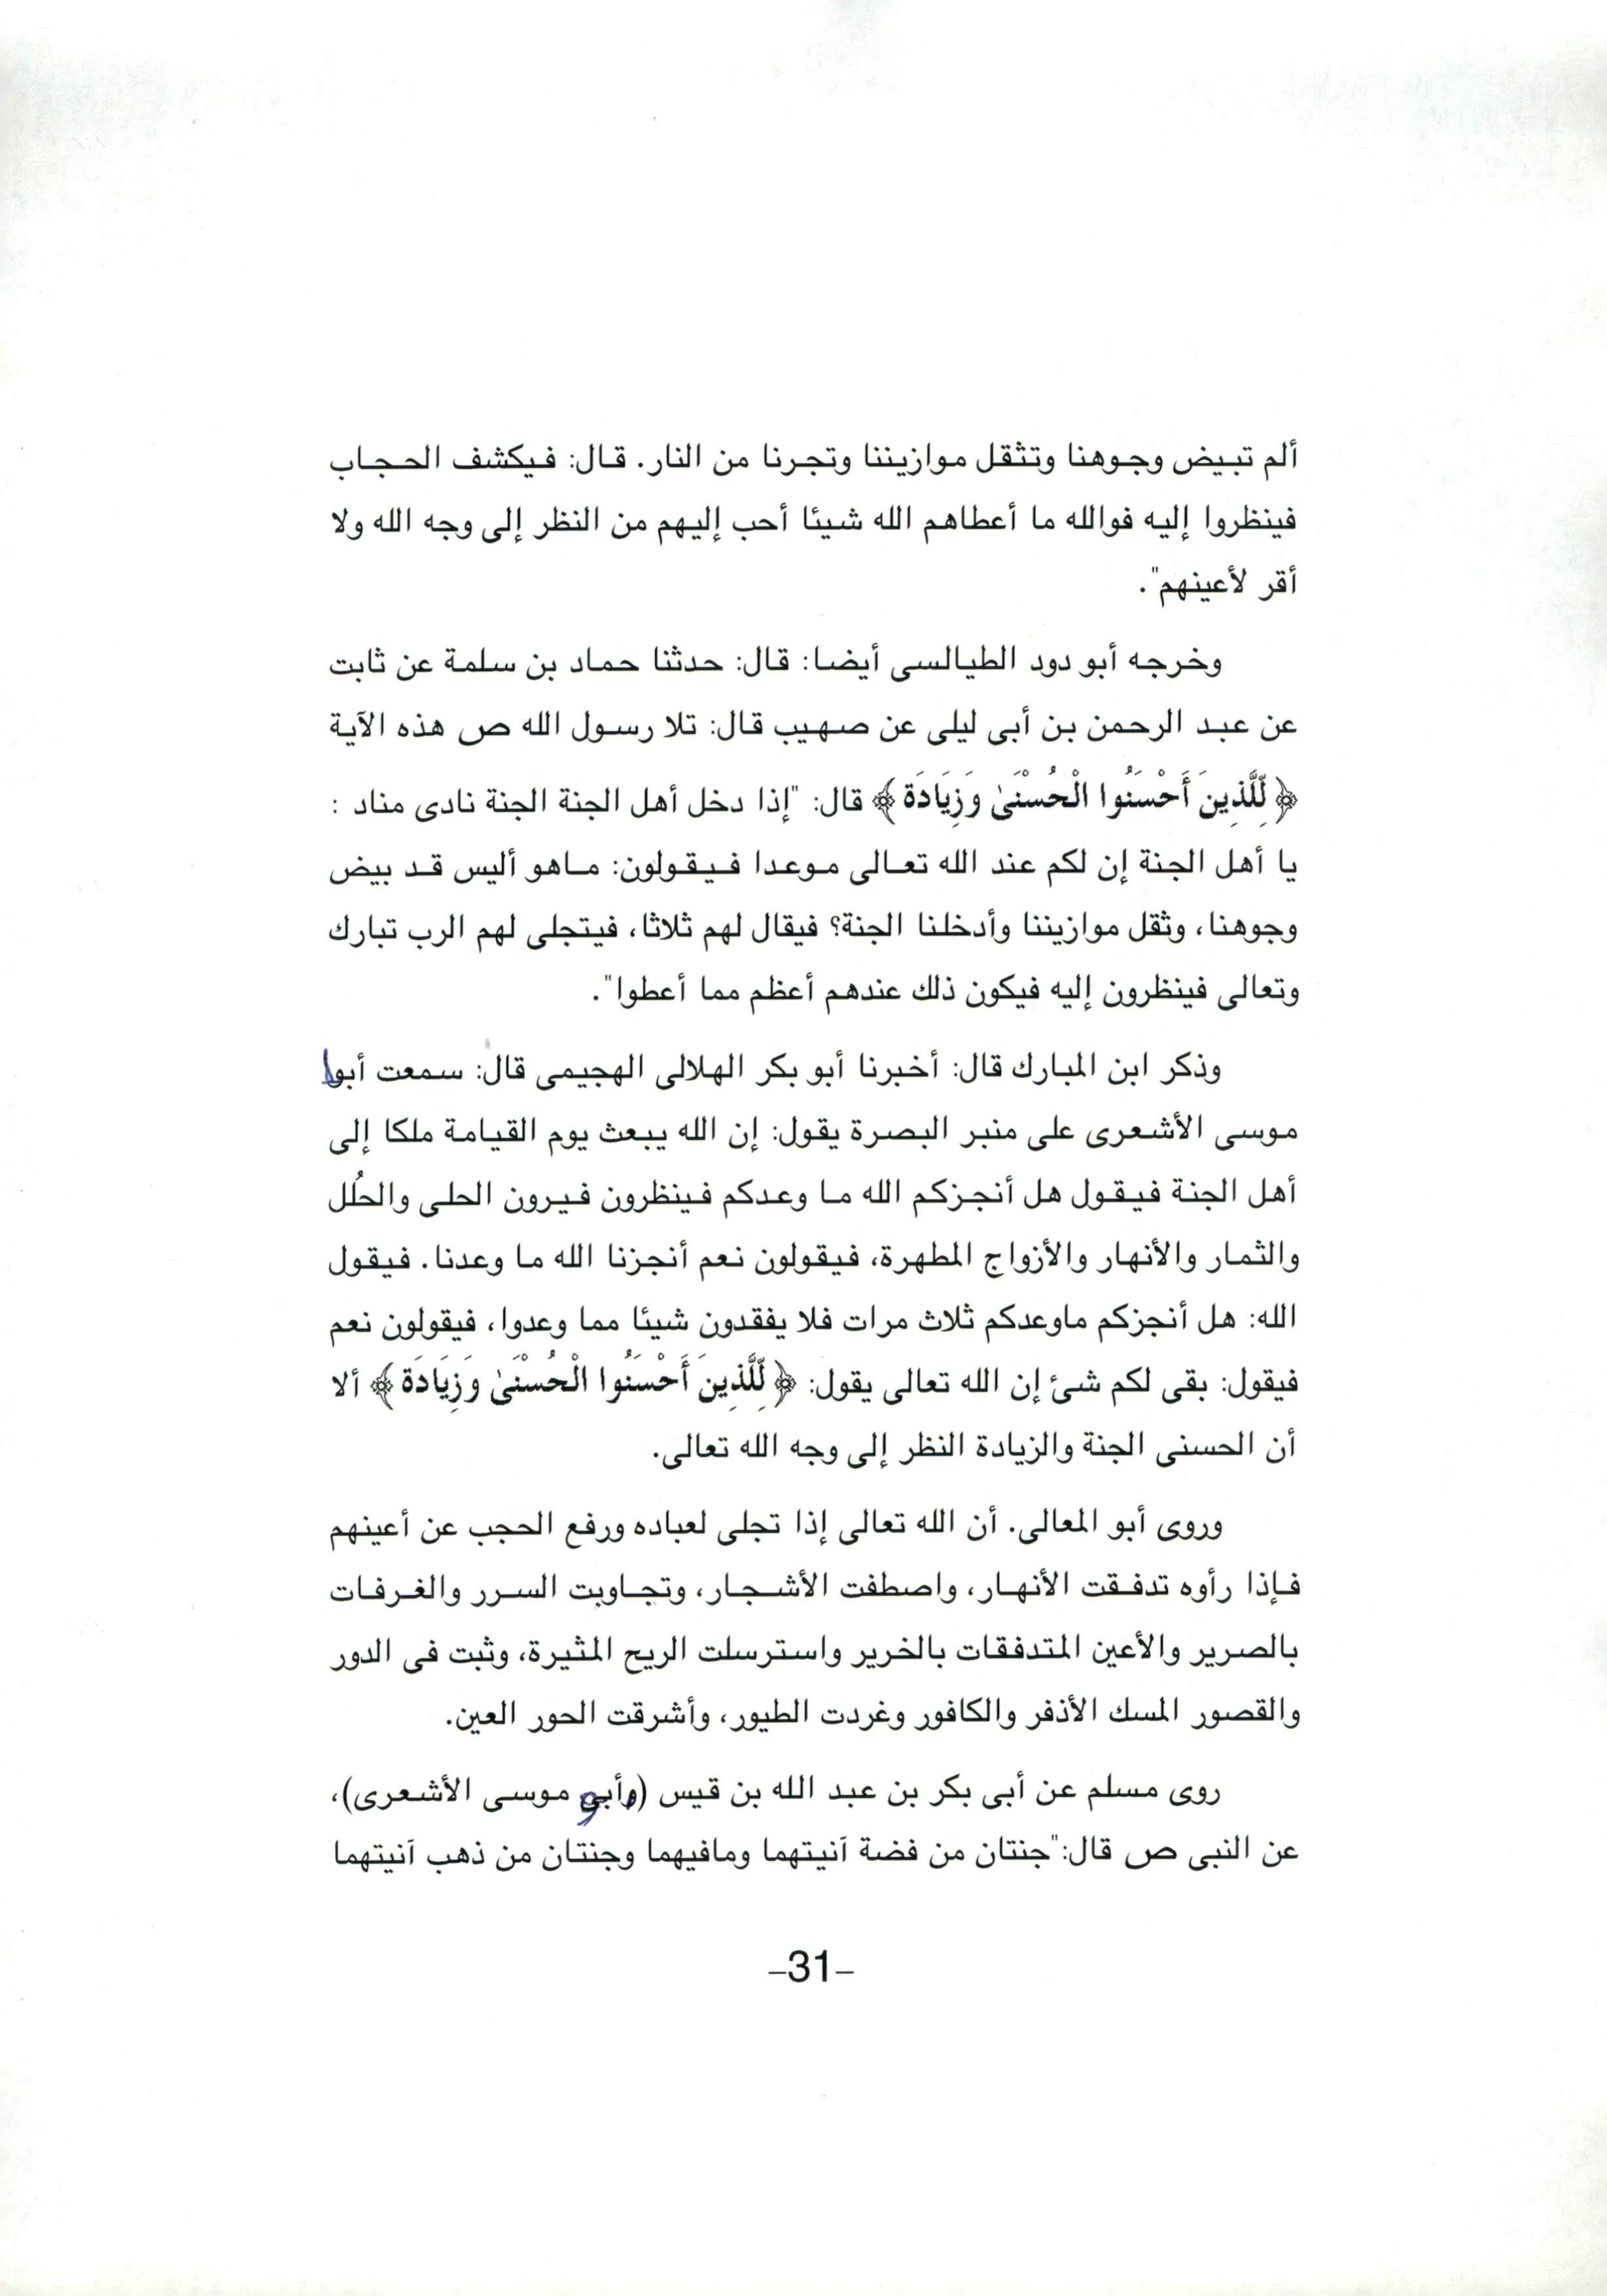 ألم تبيض وجوهنا وتثقل موازيننا وتجرنا من النار. قال: فيكشف الحجاب
فينظروا إليه فوالله ما أعطاهم الله شيئا أحب إليهم من النظر إلى وجه الله ولا
أقر لأعينهم".
وخرجه أبو دود الطيالسى أيضا: قال: حدثنا حماد بن سلمة عن ثابت
عن عبد الرحمن بن أبى ليلى عن صهيب قال: تلا رسول الله ص هذه الآية
﴿لِّلَّذِينَ أَحْسَنُوا الْحُسْنَىٰ وَزِيَادَة﴾ قال: "إذا دخل أهل الجنة الجنة نادى مناد :
يا أهل الجنة إن لكم عند الله تعالى موعدا فيقولون: ماهو أليس قد بيض
وجوهنا، وثقل موازيننا وأدخلنا الجنة؟ فيقال لهم ثلاثا، فيتجلى لهم الرب تبارك
وتعالى فينظرون إليه فيكون ذلك عندهم أعظم مما أعطوا".
وذكر ابن المبارك قال: أخبرنا أبو بكر الهلالى الهجيمى قال: سمعت أبو
موسى الأشعرى على منبر البصرة يقول: إن الله يبعث يوم القيامة ملكا إلى
أهل الجنة فيقول هل أنجزكم الله ما وعدكم فينظرون فيرون الحلى والحُلل
والثمار والأنهار والأزواج المطهرة، فيقولون نعم أنجزنا الله ما وعدنا. فيقول
الله: هل أنجزكم ماوعدكم ثلاث مرات فلا يفقدون شيئا مما وعدوا، فيقولون نعم
فيقول: بقى لكم شئ إن الله تعالى يقول: ﴿لِّلَّذِينَ أَحْسَنُوا الْحُسْنَىٰ وَزِيَادَة﴾ ألا
أن الحسنى الجنة والزيادة النظر إلى وجه الله تعالى.
وروى أبو المعالى. أن الله تعالى إذا تجلى لعباده ورفع الحجب عن أعينهم
فإذا رأوه تدفقت الأنهار، واصطفت الأشجار، وتجاوبت السرر والغرفات
بالصرير والأعين المتدفقات بالخرير واسترسلت الريح المثيرة، وثبت فى الدور
والقصور المسك الأذفر والكافور وغردت الطيور، وأشرقت الحور العين.
روى مسلم عن أبى بكر بن عبد الله بن قيس (وأبى موسى الأشعرى)،
عن النبى ص قال:"جنتان من فضة آنيتهما ومافيهما وجنتان من ذهب آنيتهما
-31-